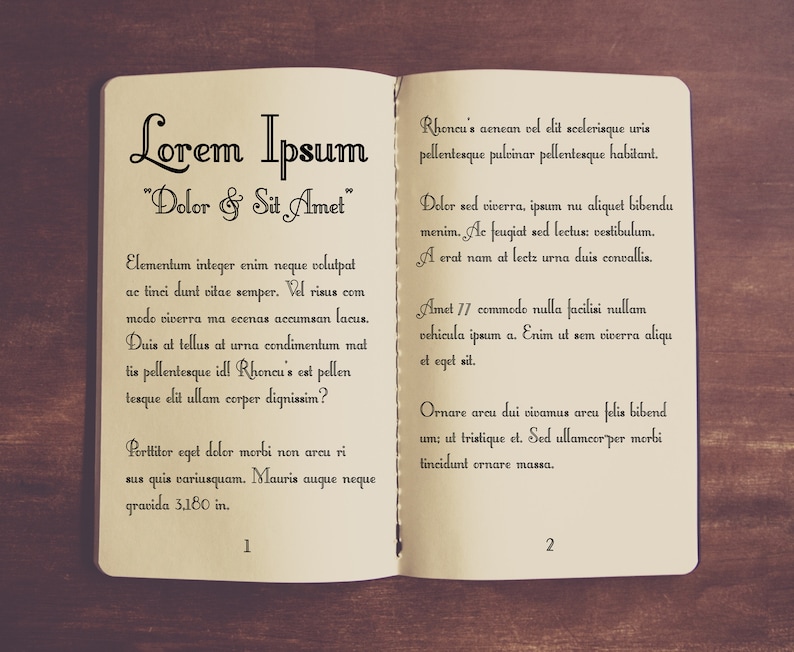 Lorem Ipsum
"Dolor & Sit Amet"
Elementum integer enim neque volutpat
ac tinci dunt vitae semper. Vel risus com
modo viverra ma ecenas accumsan lacus.
Duis at tellus at urna condimentum mat
tis pellentesque id! Rhoncu's est pellen
tesque elit ullam corper dignissim?
Porttitor eget dolor morbi non arcu ri
sus quis variusquam. Mauris augue neque
gravida 3,180 in.
1
Rhoncu's aenean vel elit scelerisque uris
pellentesque pulvinar pellentesque habitant.
Dolor sed viverra, ipsum nu aliquet bibendu
menim. Ac feugiat sed lectus: vestibulum.
A erat nam at lectz urna duis convallis.
Amet 77 commodo nulla facilisi nullam
vehicula ipsum a. Enim ut sem viverra aliqu
et eget sit.
Ornare arcu dui vivamus arcu felis bibend
um; ut tristique et. Sed ullamcor~per morbi
tincidunt ornare massa.
2